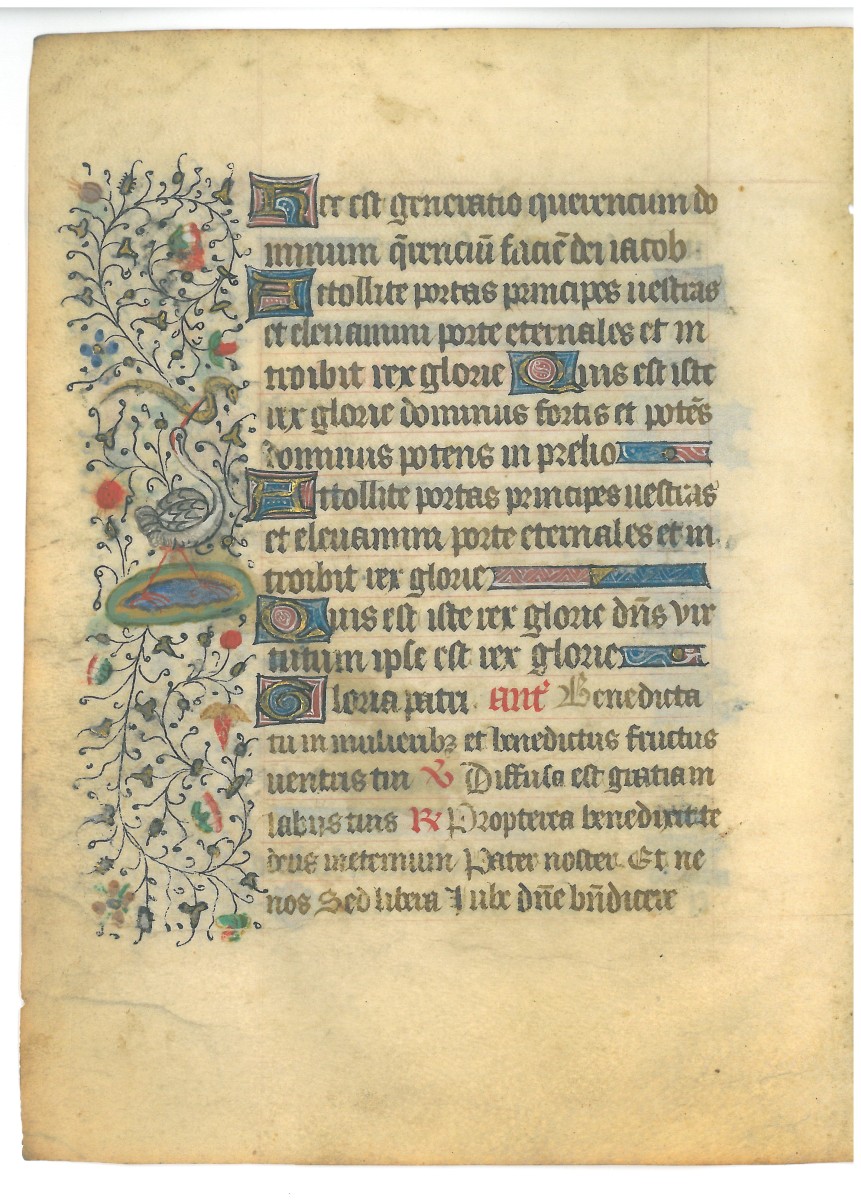 Hec est generatio querencium do
minum q̄renciū faciē dei iacob
Attollite portas principes uestras
et eleuamini porte eternales et in
troibit rex glorie Quis est iste
rex glorie dominus fortis et potēs
dominus potens in prelio
Attollite portas principes uestras
et eleuamini porte eternales et in
troibit rex glorie
Quis est iste rex glorie dn̄s vir
tutum ipse est rex glorie
Gloria patri. Ant̄ Benedicta
tu in mulieribꝫ et benedictus fructus
uentris tui ℣ Diffusa est gratia in
labijs tuis ℟ Propterea benedixit te
deus ineternum Pater noster. Et ne
nos Sed libera Iube dn̄e bn̄dicere